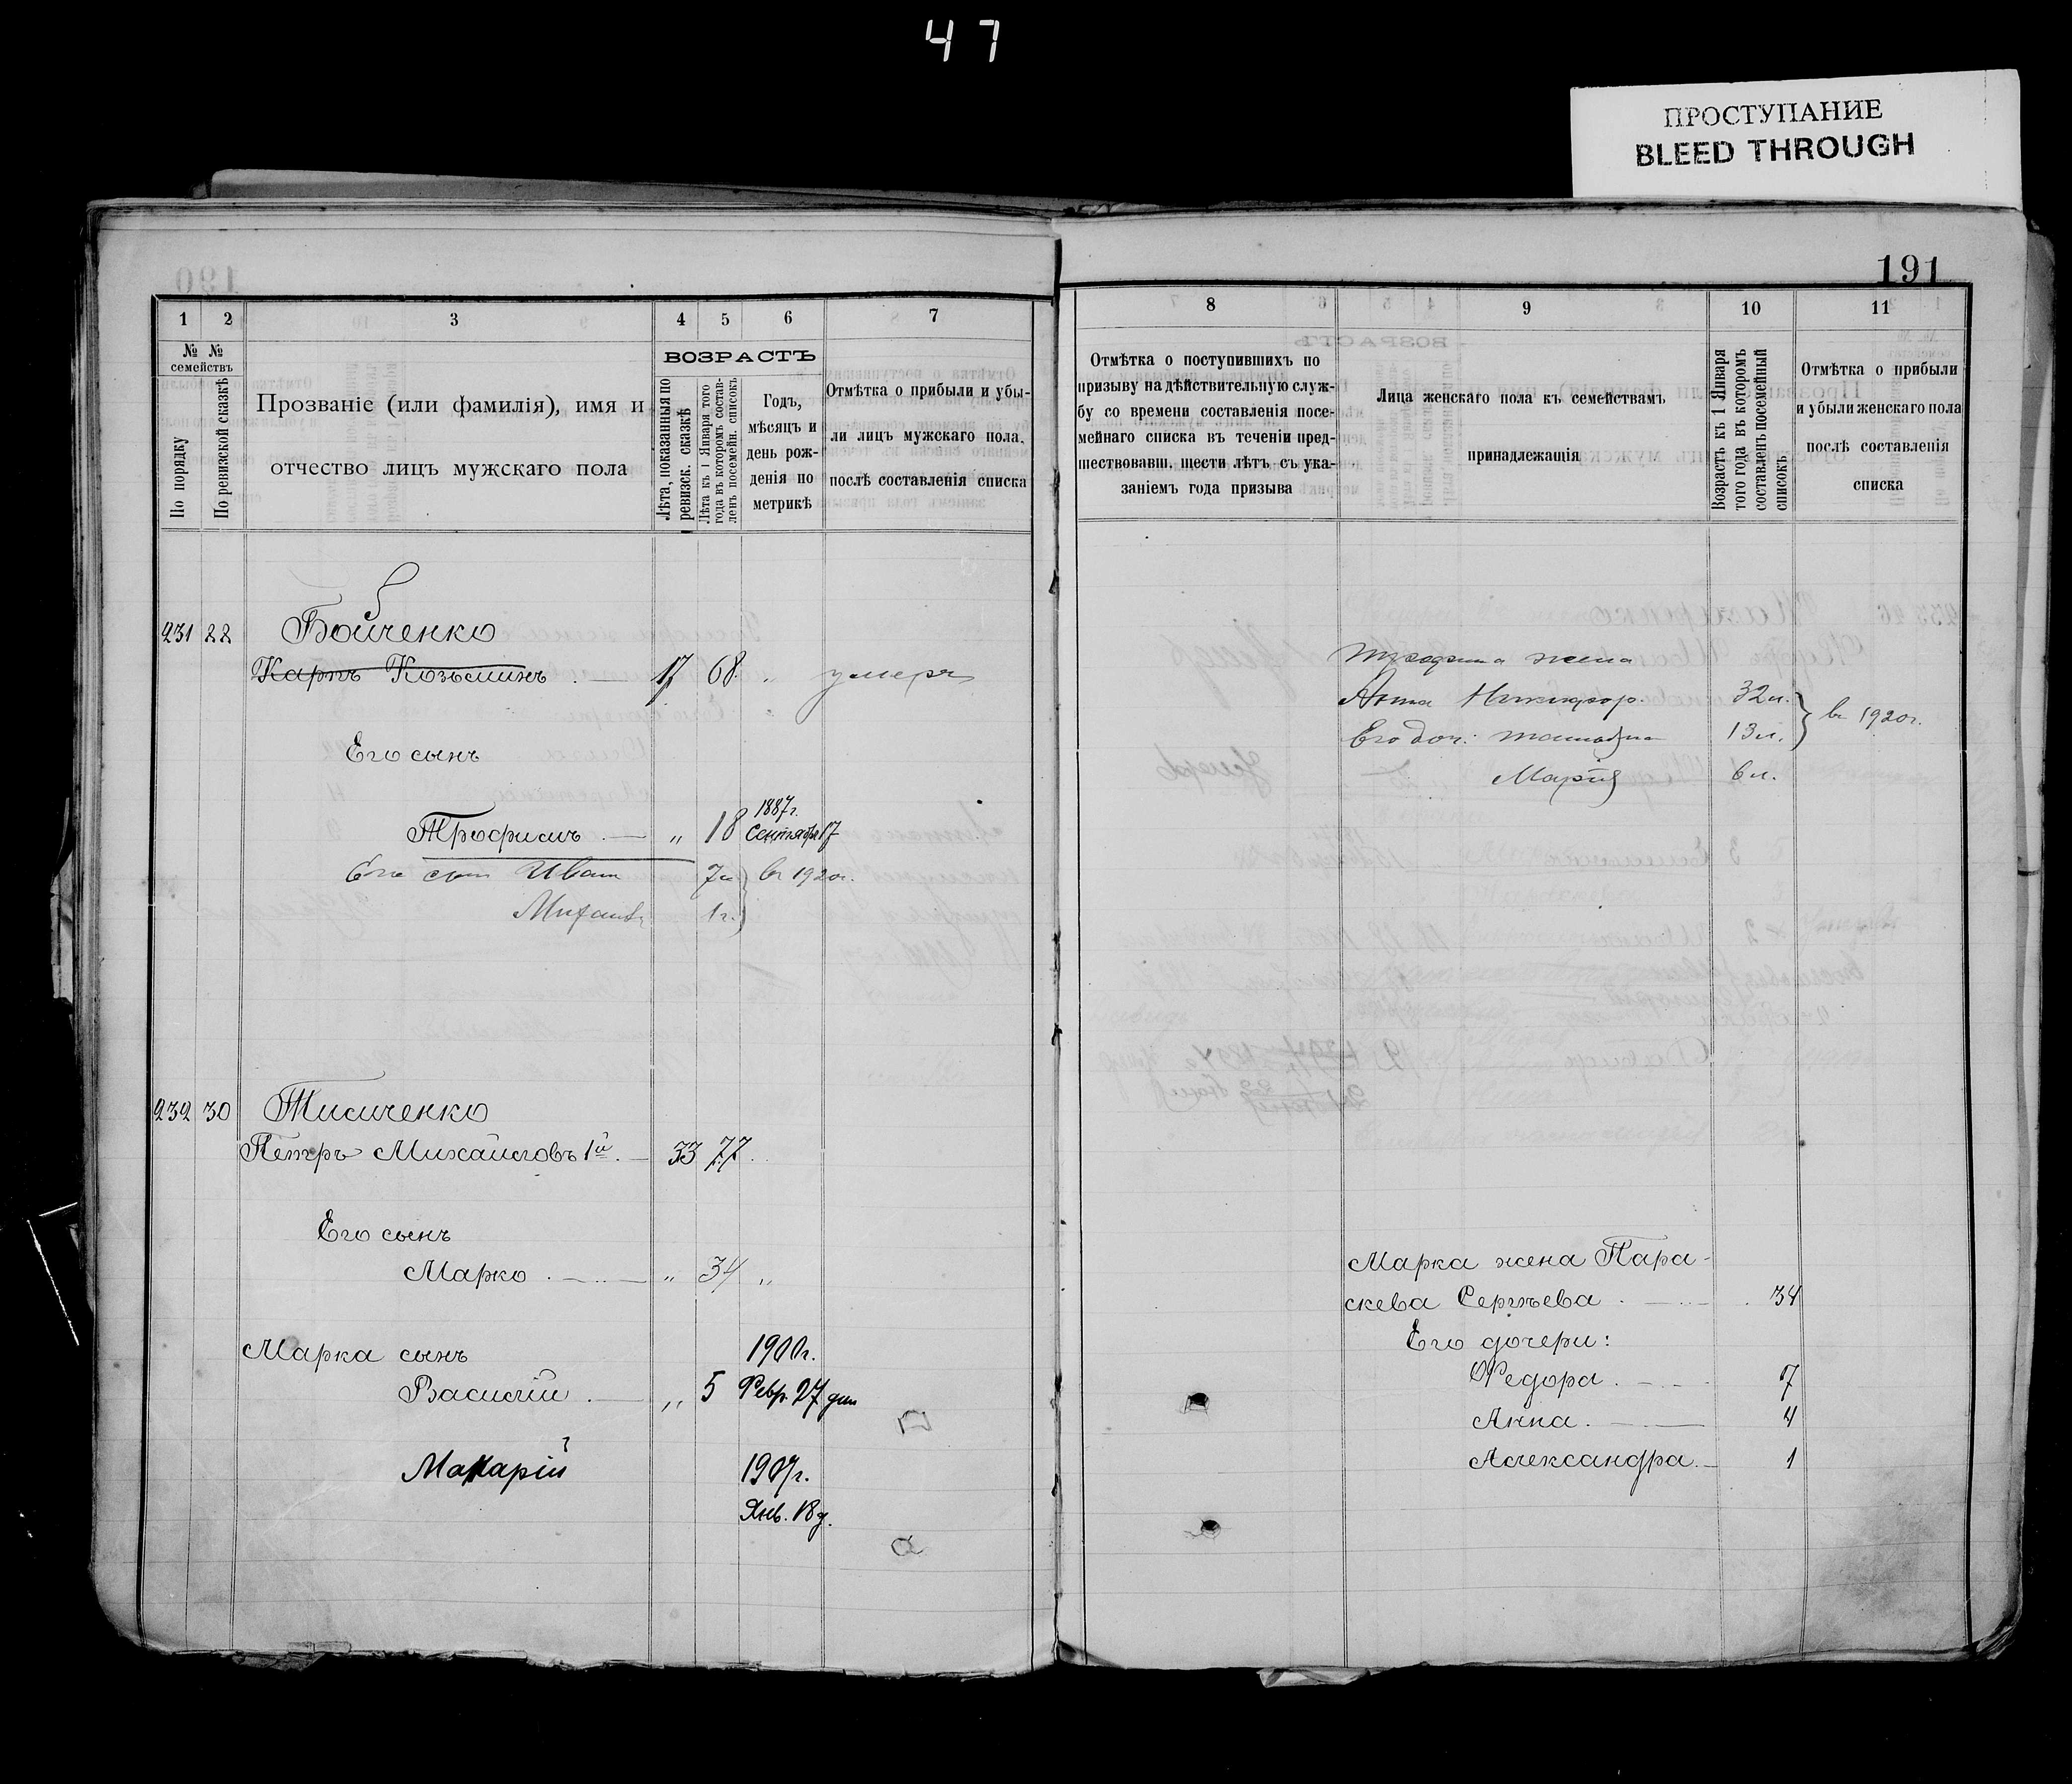 47
ПРОСТУПАНИЕ
BLEED THROUGH
1
2
3
4
5
6
7
№ №
семействъ
По порядку
По ревизской сказкѣ
Прозваніе (или фамилія), имя и
отчество лицъ мужскаго пола
ВОЗРАСТЪ
Лѣта, показанныя по
ревизск. сказкѣ
Лѣта къ 1 Января того
года въ которомъ состав-
ленъ посемейн. списокъ
Годъ,
мѣсяцъ и
день рож-
денія по
метрикѣ
Отмѣтка о прибыли и убы-
ли лицъ мужскаго пола,
послѣ составленія списка
231 22 Бойченко
Карпъ Козьминъ 17 68 умеръ
Его сынъ
1887г.
Трофимъ " 18 Сентября 17
Его сын Иван 7л въ 1920г.
Михаилъ 1г.
232 30 Тисиченко
Петръ Михайловъ 1й 33 77
Его сынъ
Марко " 34 "
Марка сынъ 1900г.
Василій " 5 Февр. 27 дня
Макарій 1907г.
Янв. 18 д.
191
8
9
10
11
Отмѣтка о поступившихъ по
призыву на дѣйствительную служ-
бу со времени составленія посе-
мейнаго списка въ теченіи пред-
шествовавш. шести лѣтъ съ ука-
заніемъ года призыва
Лица женскаго пола къ семействамъ
принадлежащія
Возрастъ къ 1 Января
того года въ которомъ
составленъ посемейный
списокъ
Отмѣтка о прибыли
и убыли женскаго пола
послѣ составленія
списка
жена
Анна Никифор. 32л. въ 1920г.
Его доч: 13л.
Марія 6л.
Марка жена Пара-
скева Сергѣева 34
Его дочери:
Федора 7
Анна 4
Александра 1